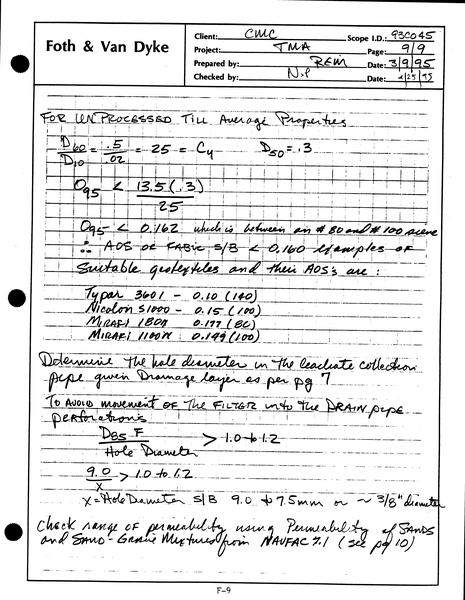 Foth & Van Dyke
Client: CMC Scope I.D.: 93C045
Project: TMA Page: 9/9
Prepared by: REM Date: 3/9/95
Checked by: N.P Date:
FOR UNPROCESSED TILL Average Properties
D60/D10 = .5/.02 = 25 = Cu D50 = .3
O95 < 13.5(.3)/25
O95 < 0.162 which is between an #80 and #100 sieve
∴ AOS of FABRIC S/B < 0.160 examples of
Suitable geotextiles and their AOS's are:
Typar 3601 - 0.10 (140)
Nicolon S1000 - 0.15 (100)
MIRAFI 180X - 0.177 (80)
MIRAFI 1100X - 0.149 (100)
Determine the hole diameter in the leachate collection
pipe given Drainage layer as per pg 7
TO AVOID movement OF THE FILTER into the DRAIN pipe
perforations
D85 F/Hole Diameter > 1.0 to 1.2
9.0/x > 1.0 to 1.2
X = Hole Diameter S/B 9.0 to 7.5mm or ~ 3/8" diameter
Check range of permeability using Permeability of SANDS
and SAND-Gravel Mixtures from NAVFAC 7.1 (see pg 10)
F-9